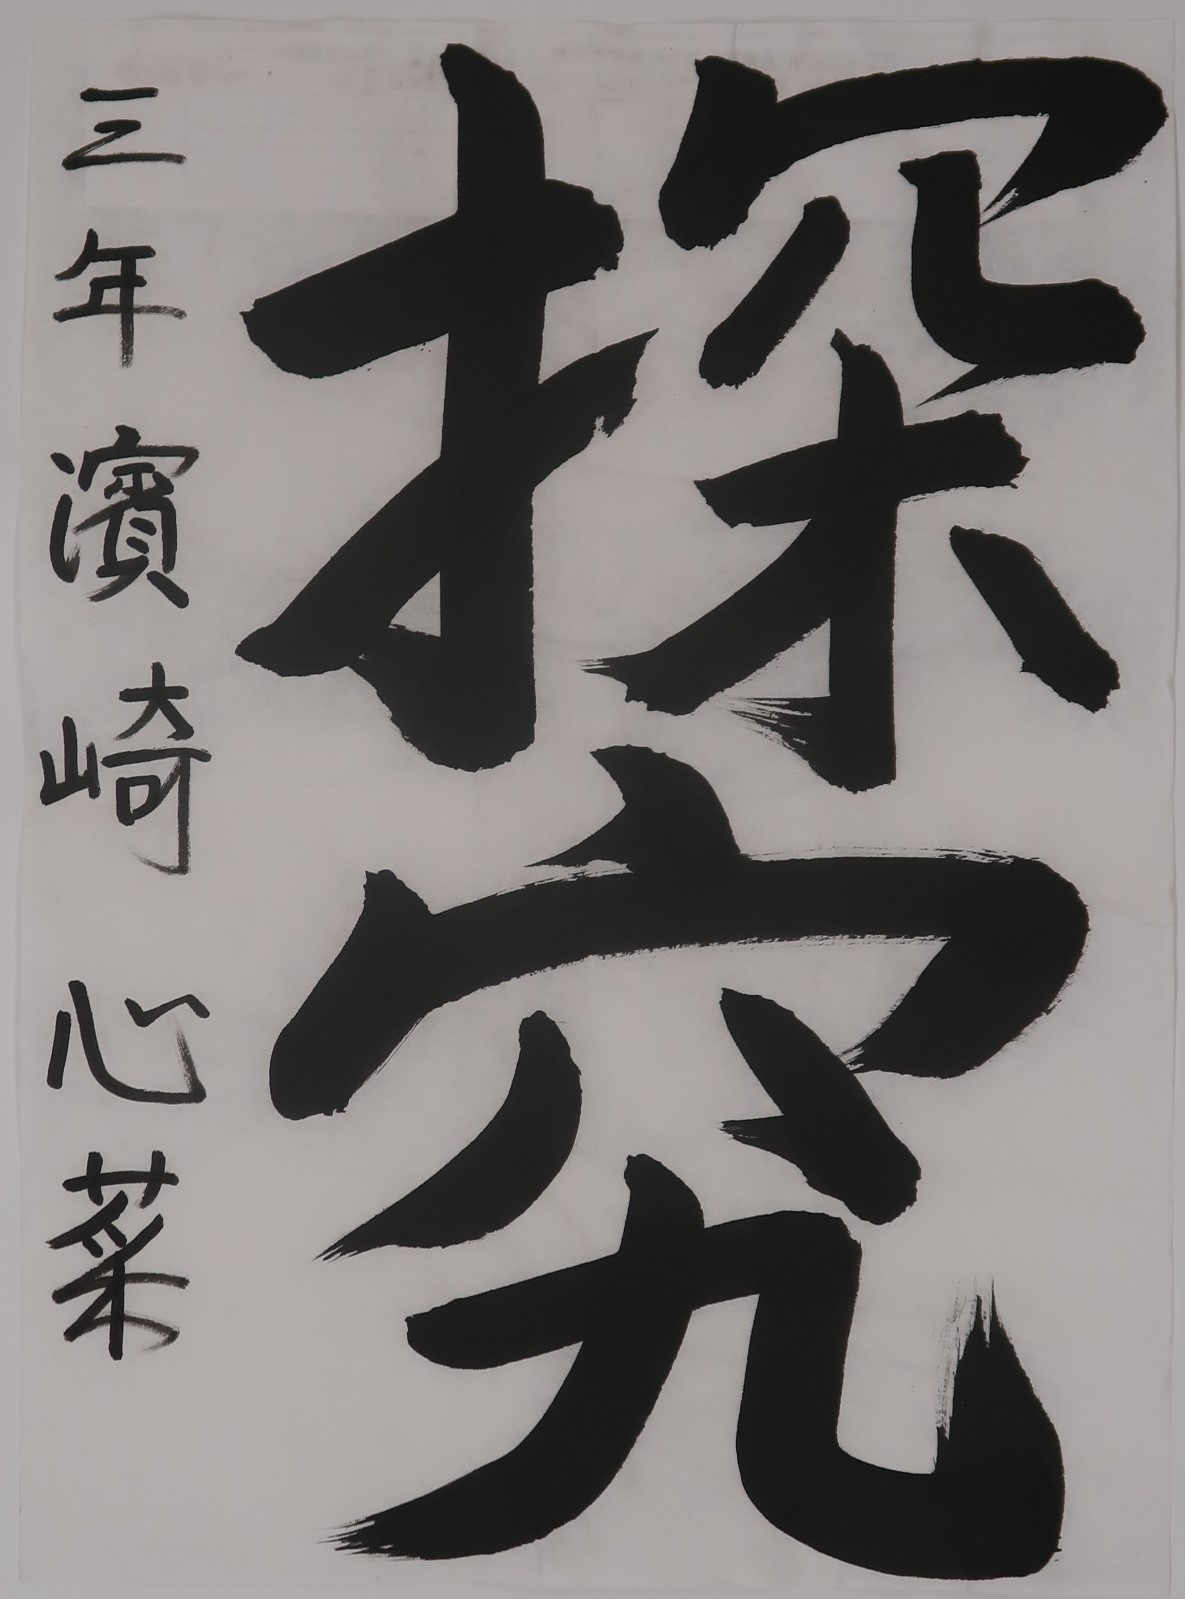 探究
三年 濵崎 心菜